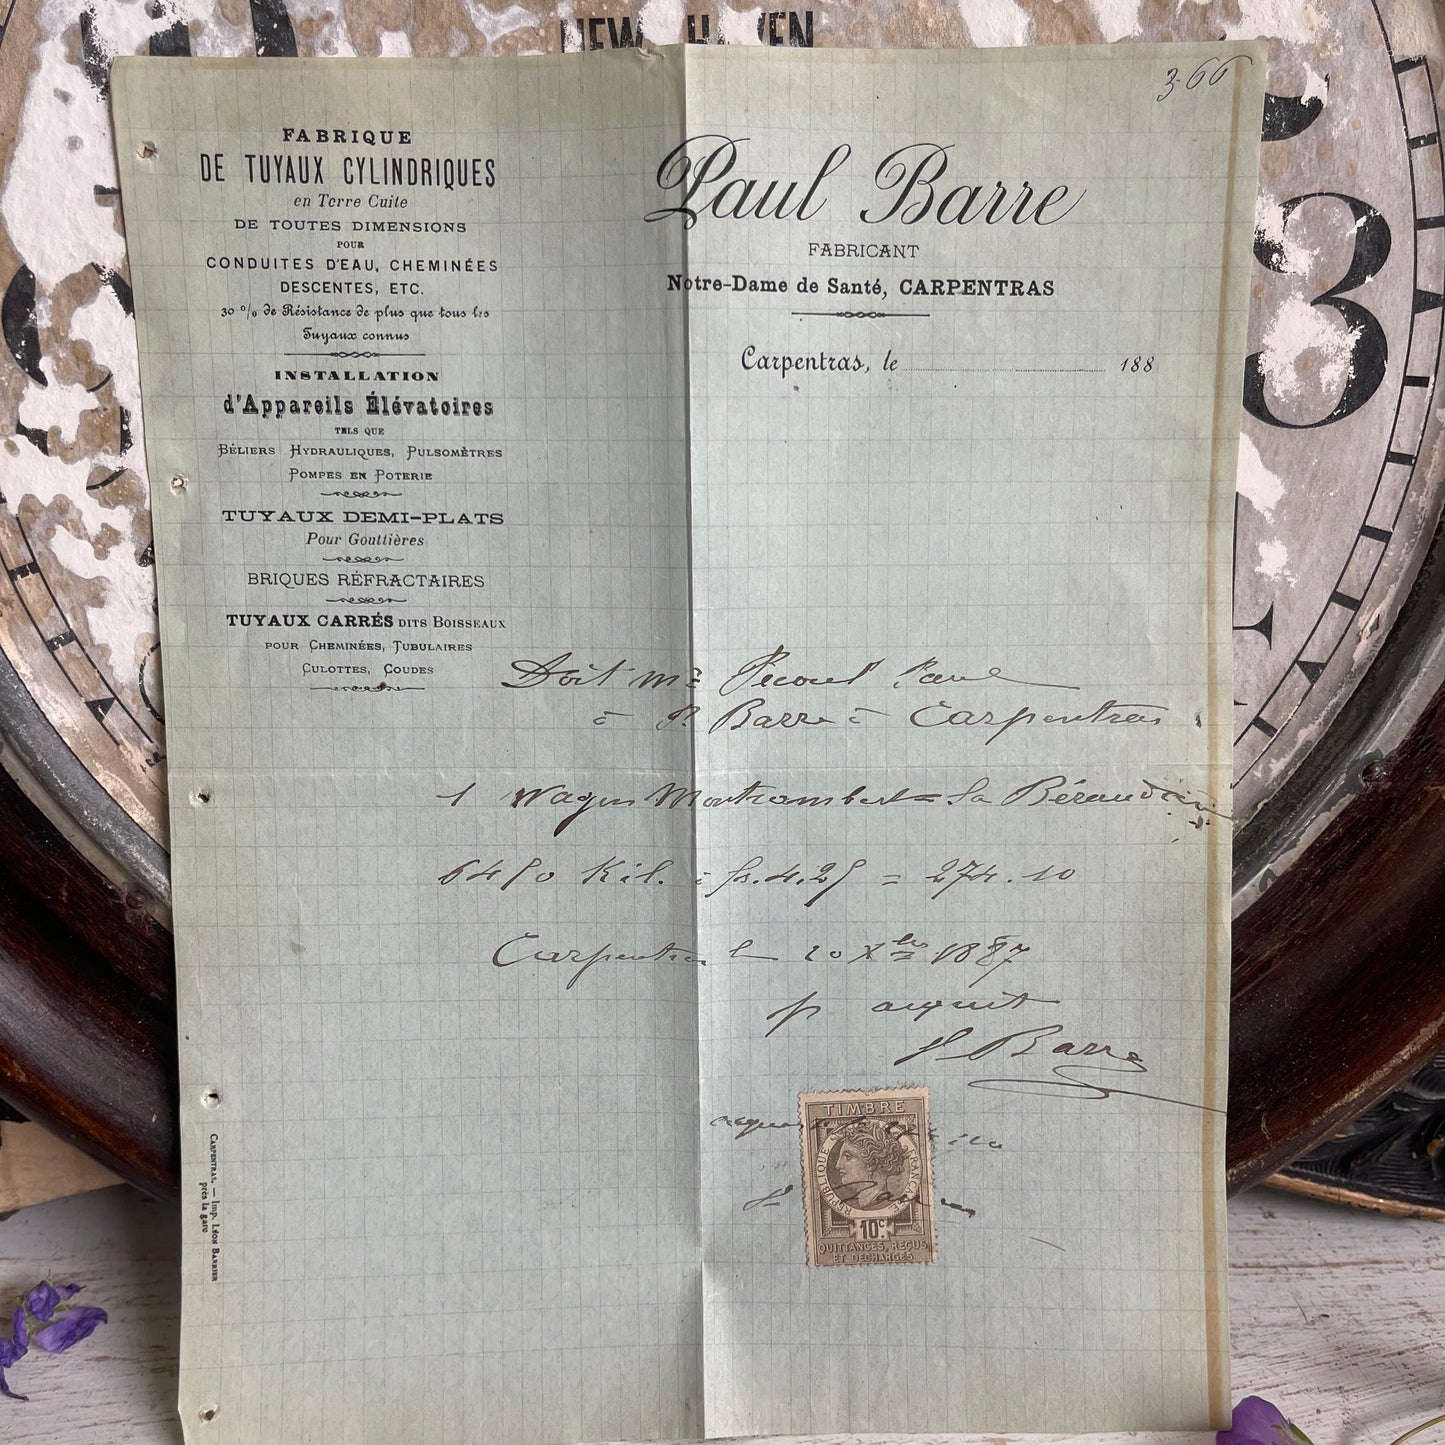 NEW HAVEN
3
3.66
FABRIQUE
DE TUYAUX CYLINDRIQUES
en Terre Cuite
DE TOUTES DIMENSIONS
POUR
CONDUITES D'EAU, CHEMINÉES
DESCENTES, ETC.
30 % de Résistance de plus que tous les
Tuyaux connus
INSTALLATION
d'Appareils Élévatoires
TELS QUE
BÉLIERS HYDRAULIQUES, PULSOMÈTRES
POMPES EN POTERIE
TUYAUX DEMI-PLATS
Pour Gouttières
BRIQUES RÉFRACTAIRES
TUYAUX CARRÉS DITS BOISSEAUX
POUR CHEMINÉES, TUBULAIRES
CULOTTES, COUDES
Paul Barre
FABRICANT
Notre-Dame de Santé, CARPENTRAS
Carpentras, le 188
Doit Mr Pécoul
à P. Barre à Carpentras
1 Wagon Montrambert = la Béraudière
6450 Kil. à fr. 4,25 = 274.10
Carpentras le 20 Xbre 1887
pr acquit
P Barre
TIMBRE
RÉPUBLIQUE FRANÇAISE
10c.
QUITTANCES, REÇUS
ET DÉCHARGES
CARPENTRAS. — Imp. LÉON BARRIER
près la gare